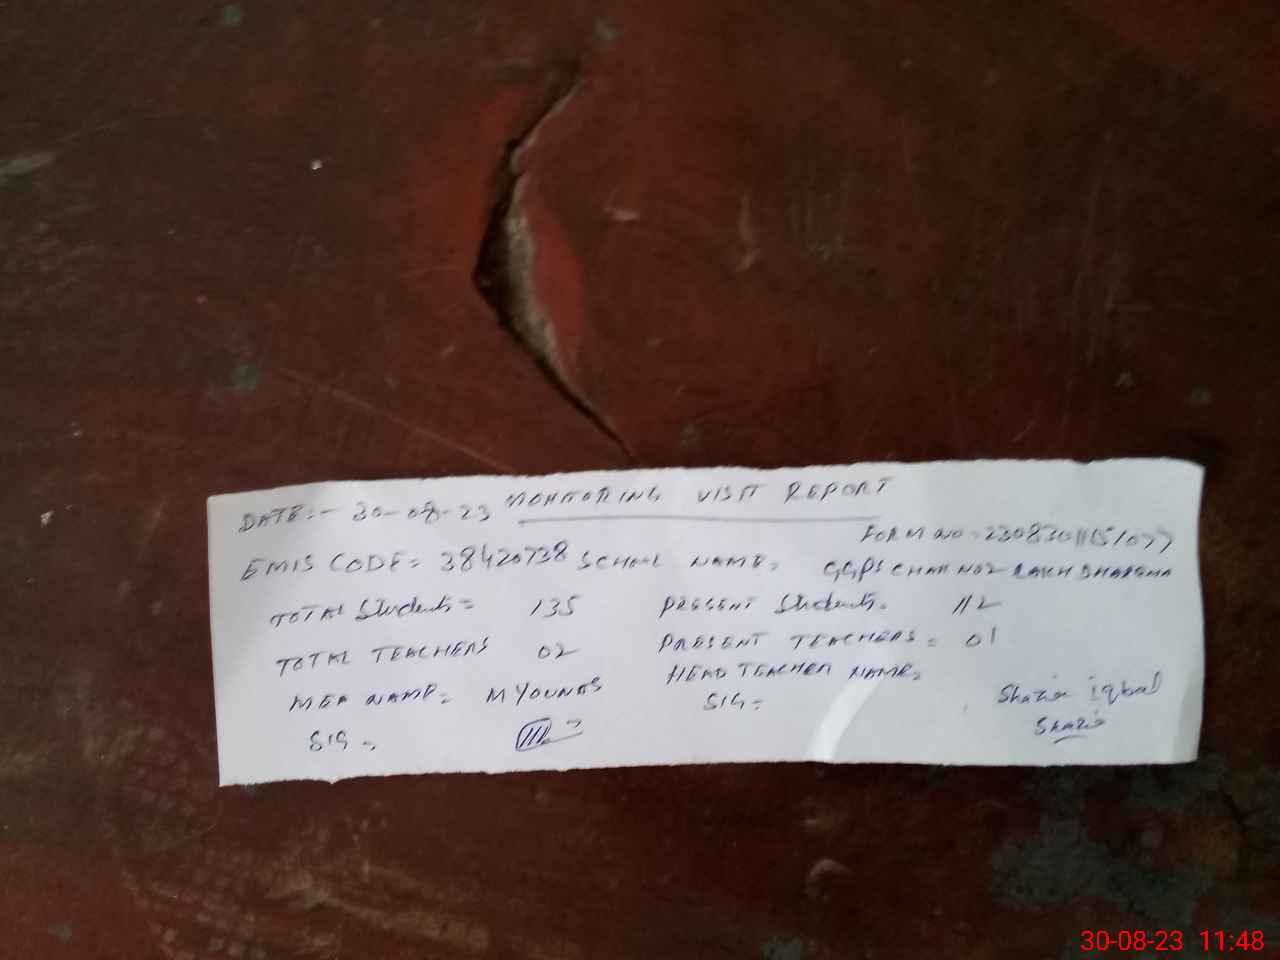 MONITORING VISIT REPORT
DATE:- 30-08-23
FORM NO = 230830111151077
EMIS CODE = 38420738 SCHOOL NAME = GGPS CHAK NO2 LAKH
TOTAL Students = 135 PRESENT Students = 112
TOTAL TEACHERS 02 PRESENT TEACHERS = 01
MEA NAME = M YOUNAS HEAD TEACHER NAME = Shazia iqbal
SIG = SIG = Shazia
30-08-23 11:48